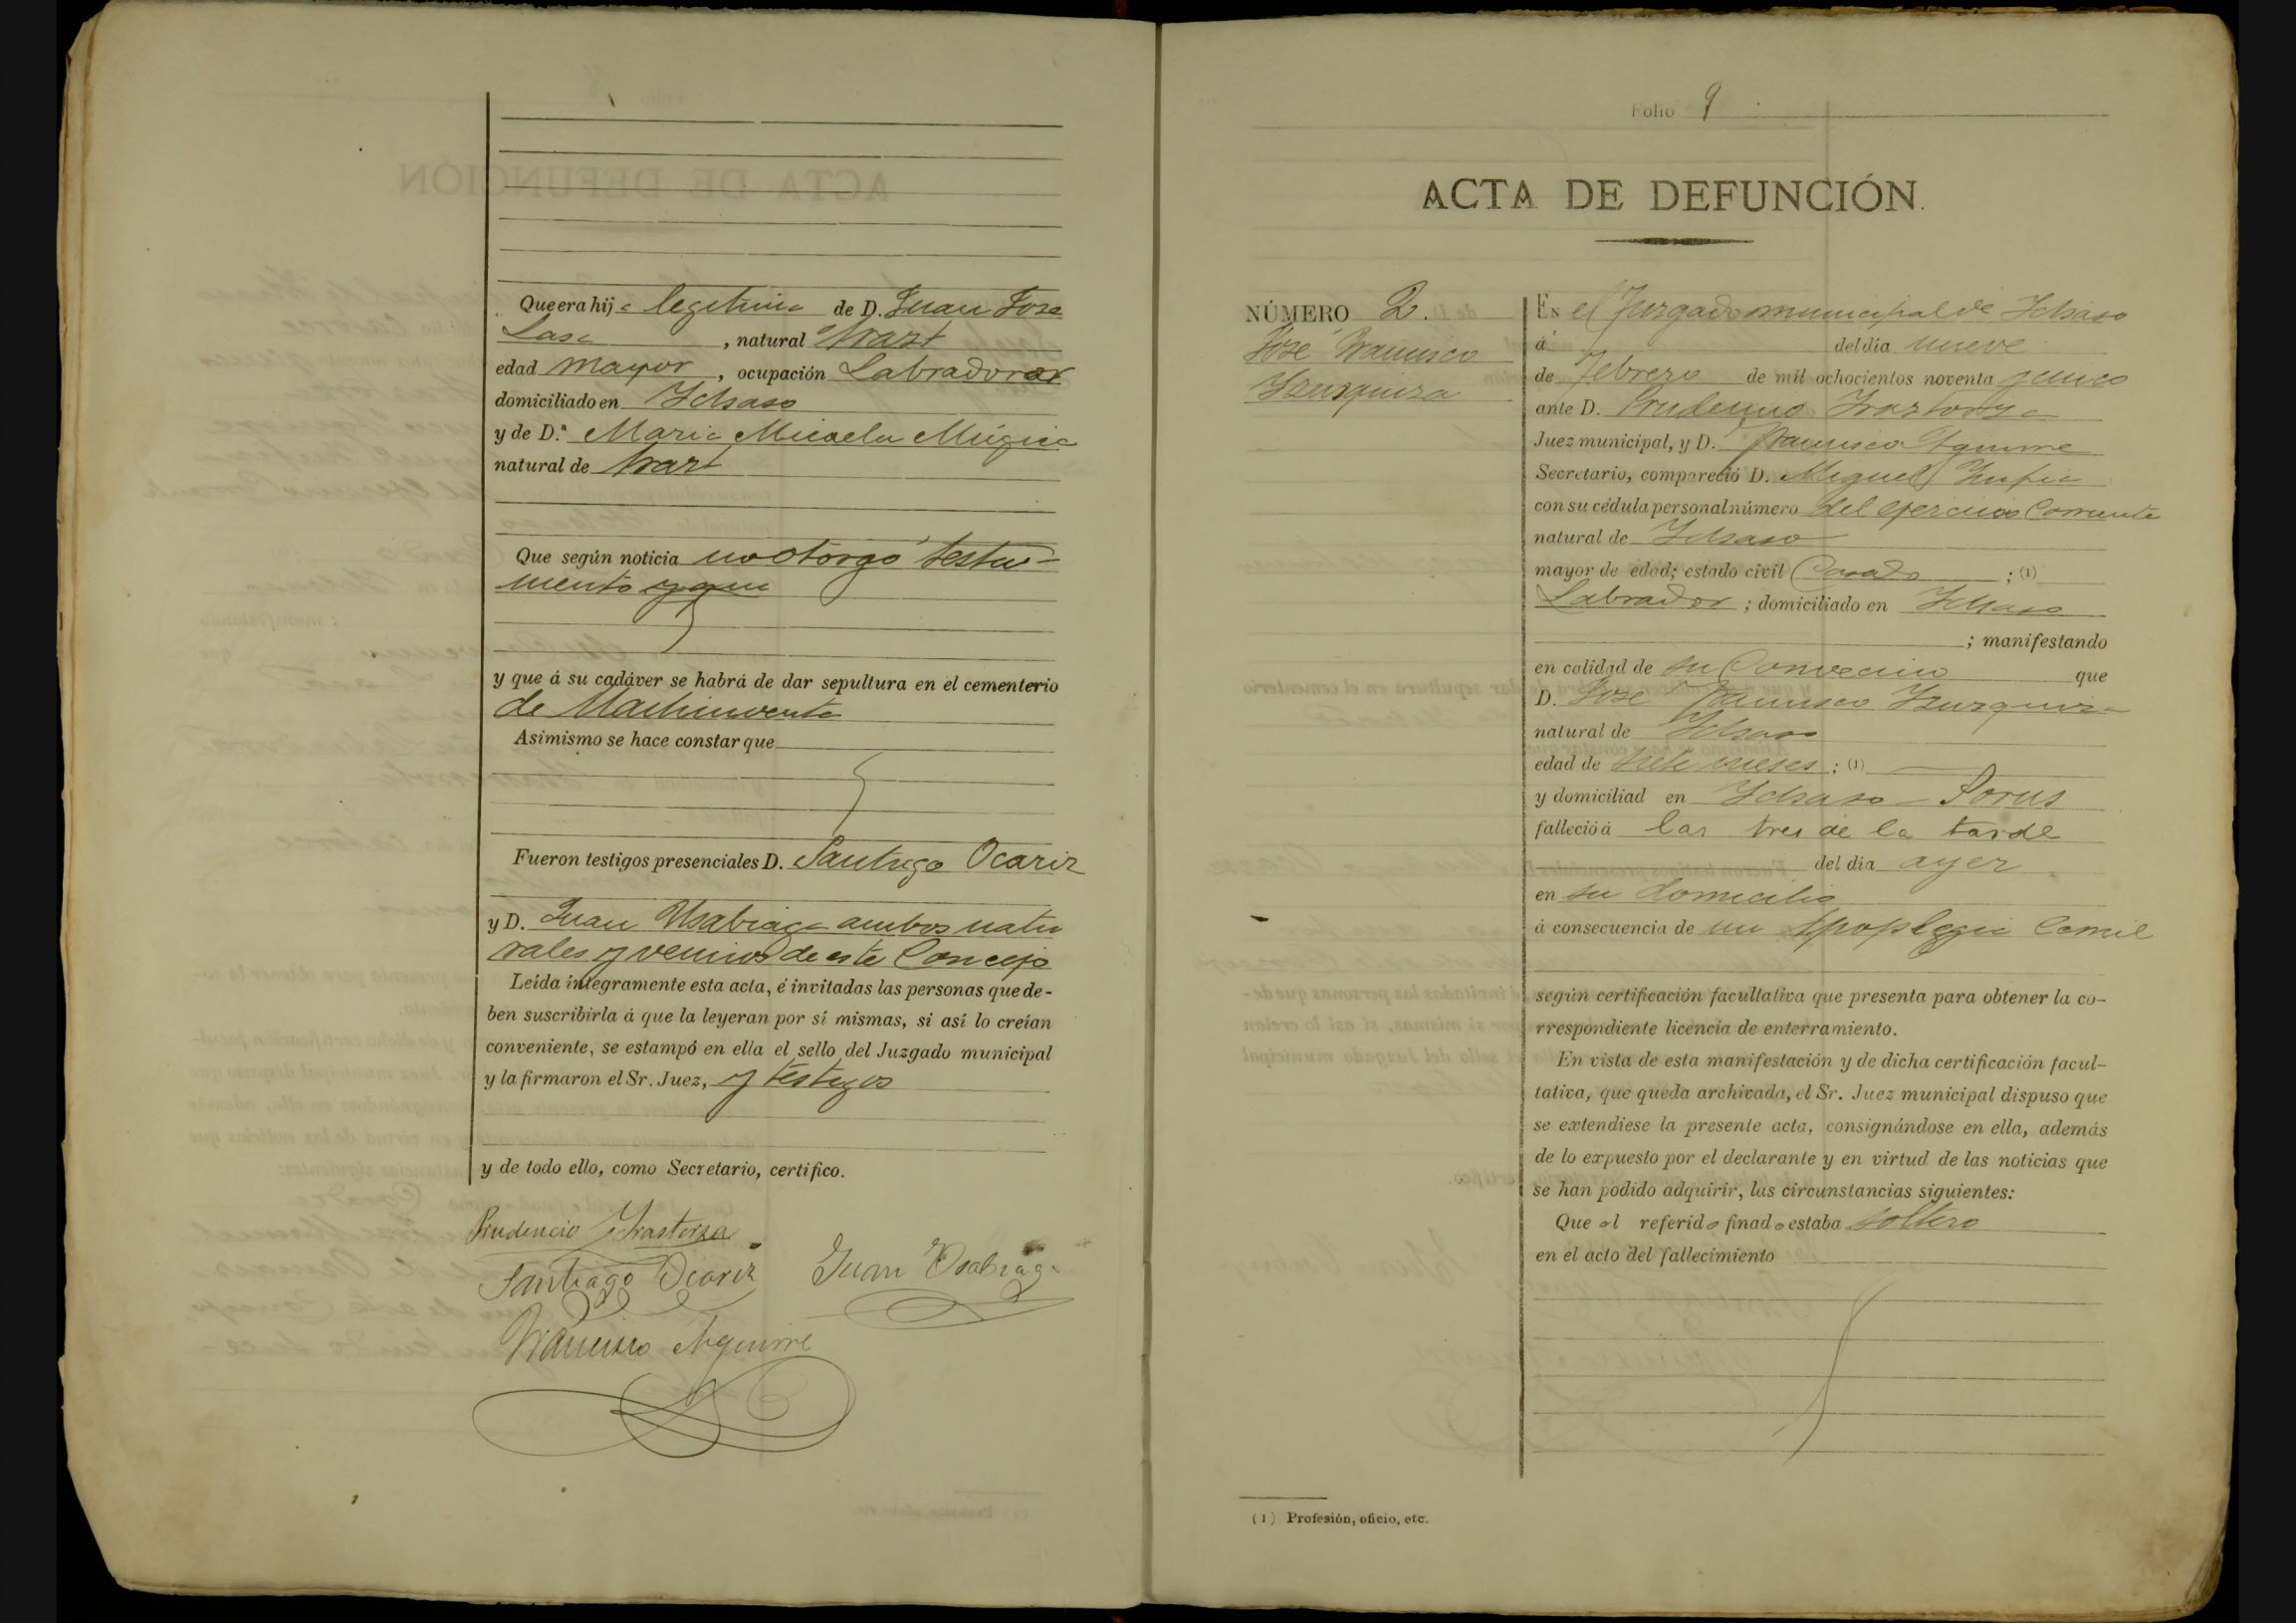 Que era hija legitima de D. Juan José
Lasa, natural Arart
edad mayor, ocupación Labrador
domiciliado en Ichaso
y de D.ª Maria Micaela Múgica
natural de Arart
Que según noticia no otorgó testa-
mento y que
y que á su cadáver se habrá de dar sepultura en el cementerio
de Machinventa
Asimismo se hace constar que
Fueron testigos presenciales D. Santiago Ocariz
y D. Juan Usabiaga ambos natu
rales y vecinos de este Concejo
Leída íntegramente esta acta, é invitadas las personas que de-
ben suscribirla á que la leyeran por sí mismas, si así lo creían
conveniente, se estampó en ella el sello del Juzgado municipal
y la firmaron el Sr. Juez, y testigos
y de todo ello, como Secretario, certifico.
Prudencio Yrastorza
Santiago Ocariz Juan Usabiaga
Francisco Aguirre
Folio 9
ACTA DE DEFUNCIÓN.
NÚMERO 2.
José Francisco
Yzurquiza
EN el Juzgado municipal de Ichaso
á del día nueve
de Febrero de mil ochocientos noventa y cinco
ante D. Prudencio Yrastorza
Juez municipal, y D. Francisco Aguirre
Secretario, compareció D. Miguel
con su cédula personal número del ejercicio Corriente
natural de Ichaso
mayor de edad; estado civil Casado ; (1)
Labrador ; domiciliado en Ichaso
; manifestando
en calidad de su Convecino que
D. José Francisco Yzurquiza
natural de Ichaso
edad de siete meses ; (1)
y domiciliad en Ichaso -
falleció á las tres de la tarde
del día ayer
en su domicilio
á consecuencia de un Apoplegia
según certificación facultativa que presenta para obtener la co-
rrespondiente licencia de enterramiento.
En vista de esta manifestación y de dicha certificación facul-
tativa, que queda archivada, el Sr. Juez municipal dispuso que
se extendiese la presente acta, consignándose en ella, además
de lo expuesto por el declarante y en virtud de las noticias que
se han podido adquirir, las circunstancias siguientes:
Que el referido finado estaba soltero
en el acto del fallecimiento
(1) Profesión, oficio, etc.